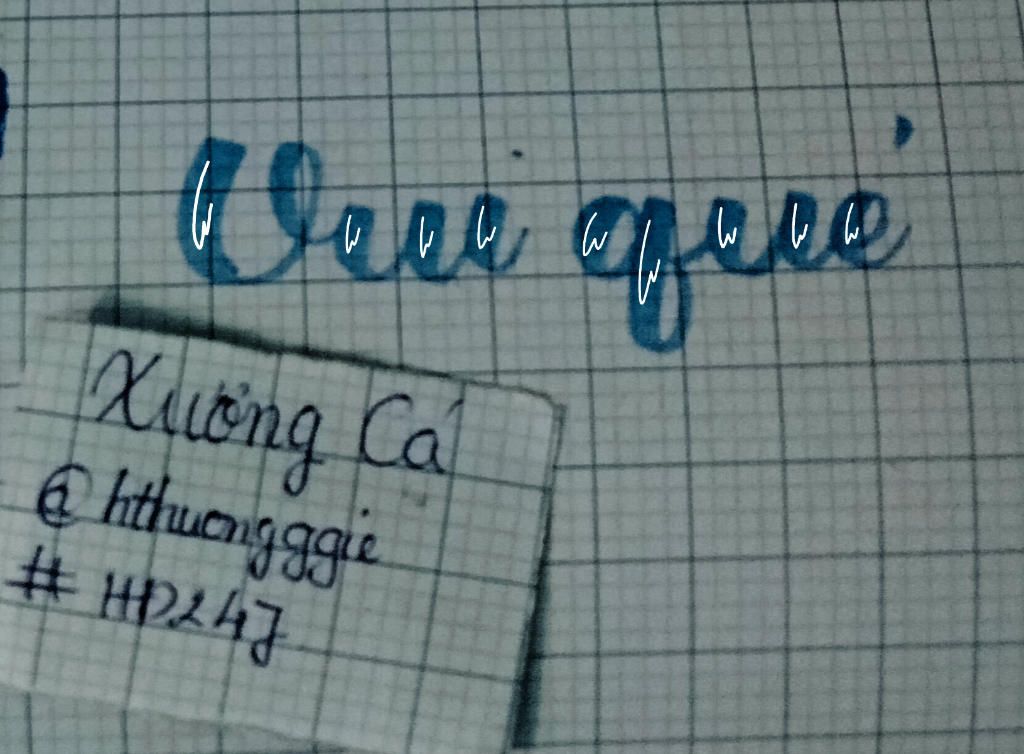 Vui qué
Xương Cá
@hthuongggie
# HD247